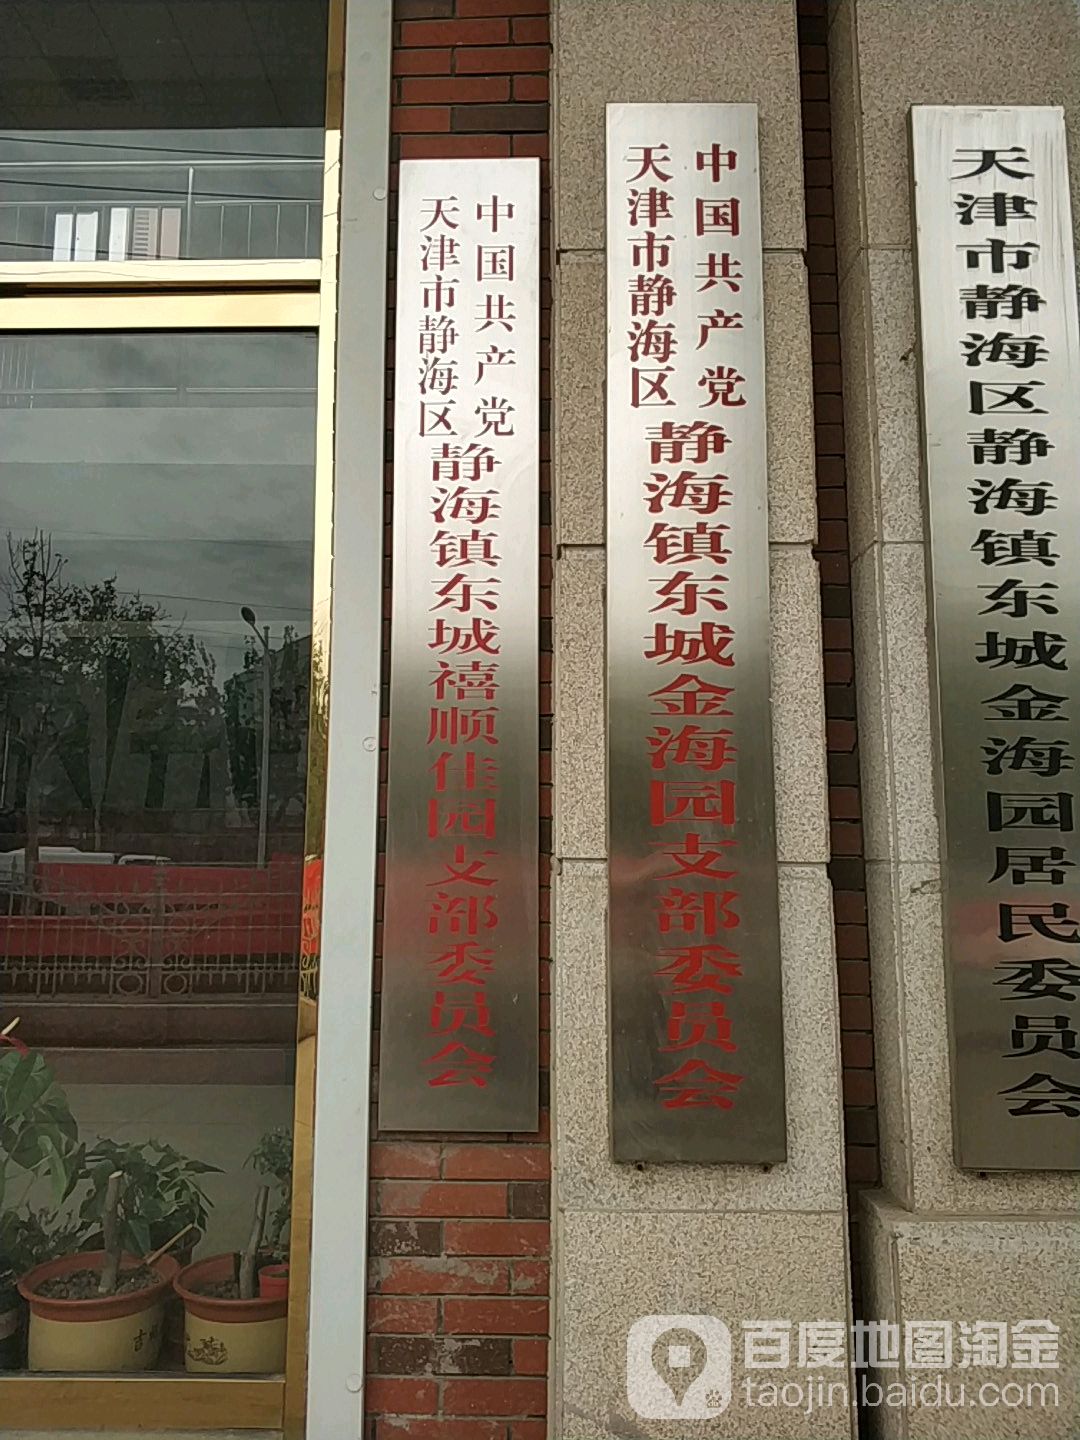 中国共产党
天津市静海区
静海镇东城禧顺佳园支部委员会
中国共产党
天津市静海区
静海镇东城金海园支部委员会
天津市静海区静海镇东城金海园居民委员会
百度地图淘金
taojin.baidu.com